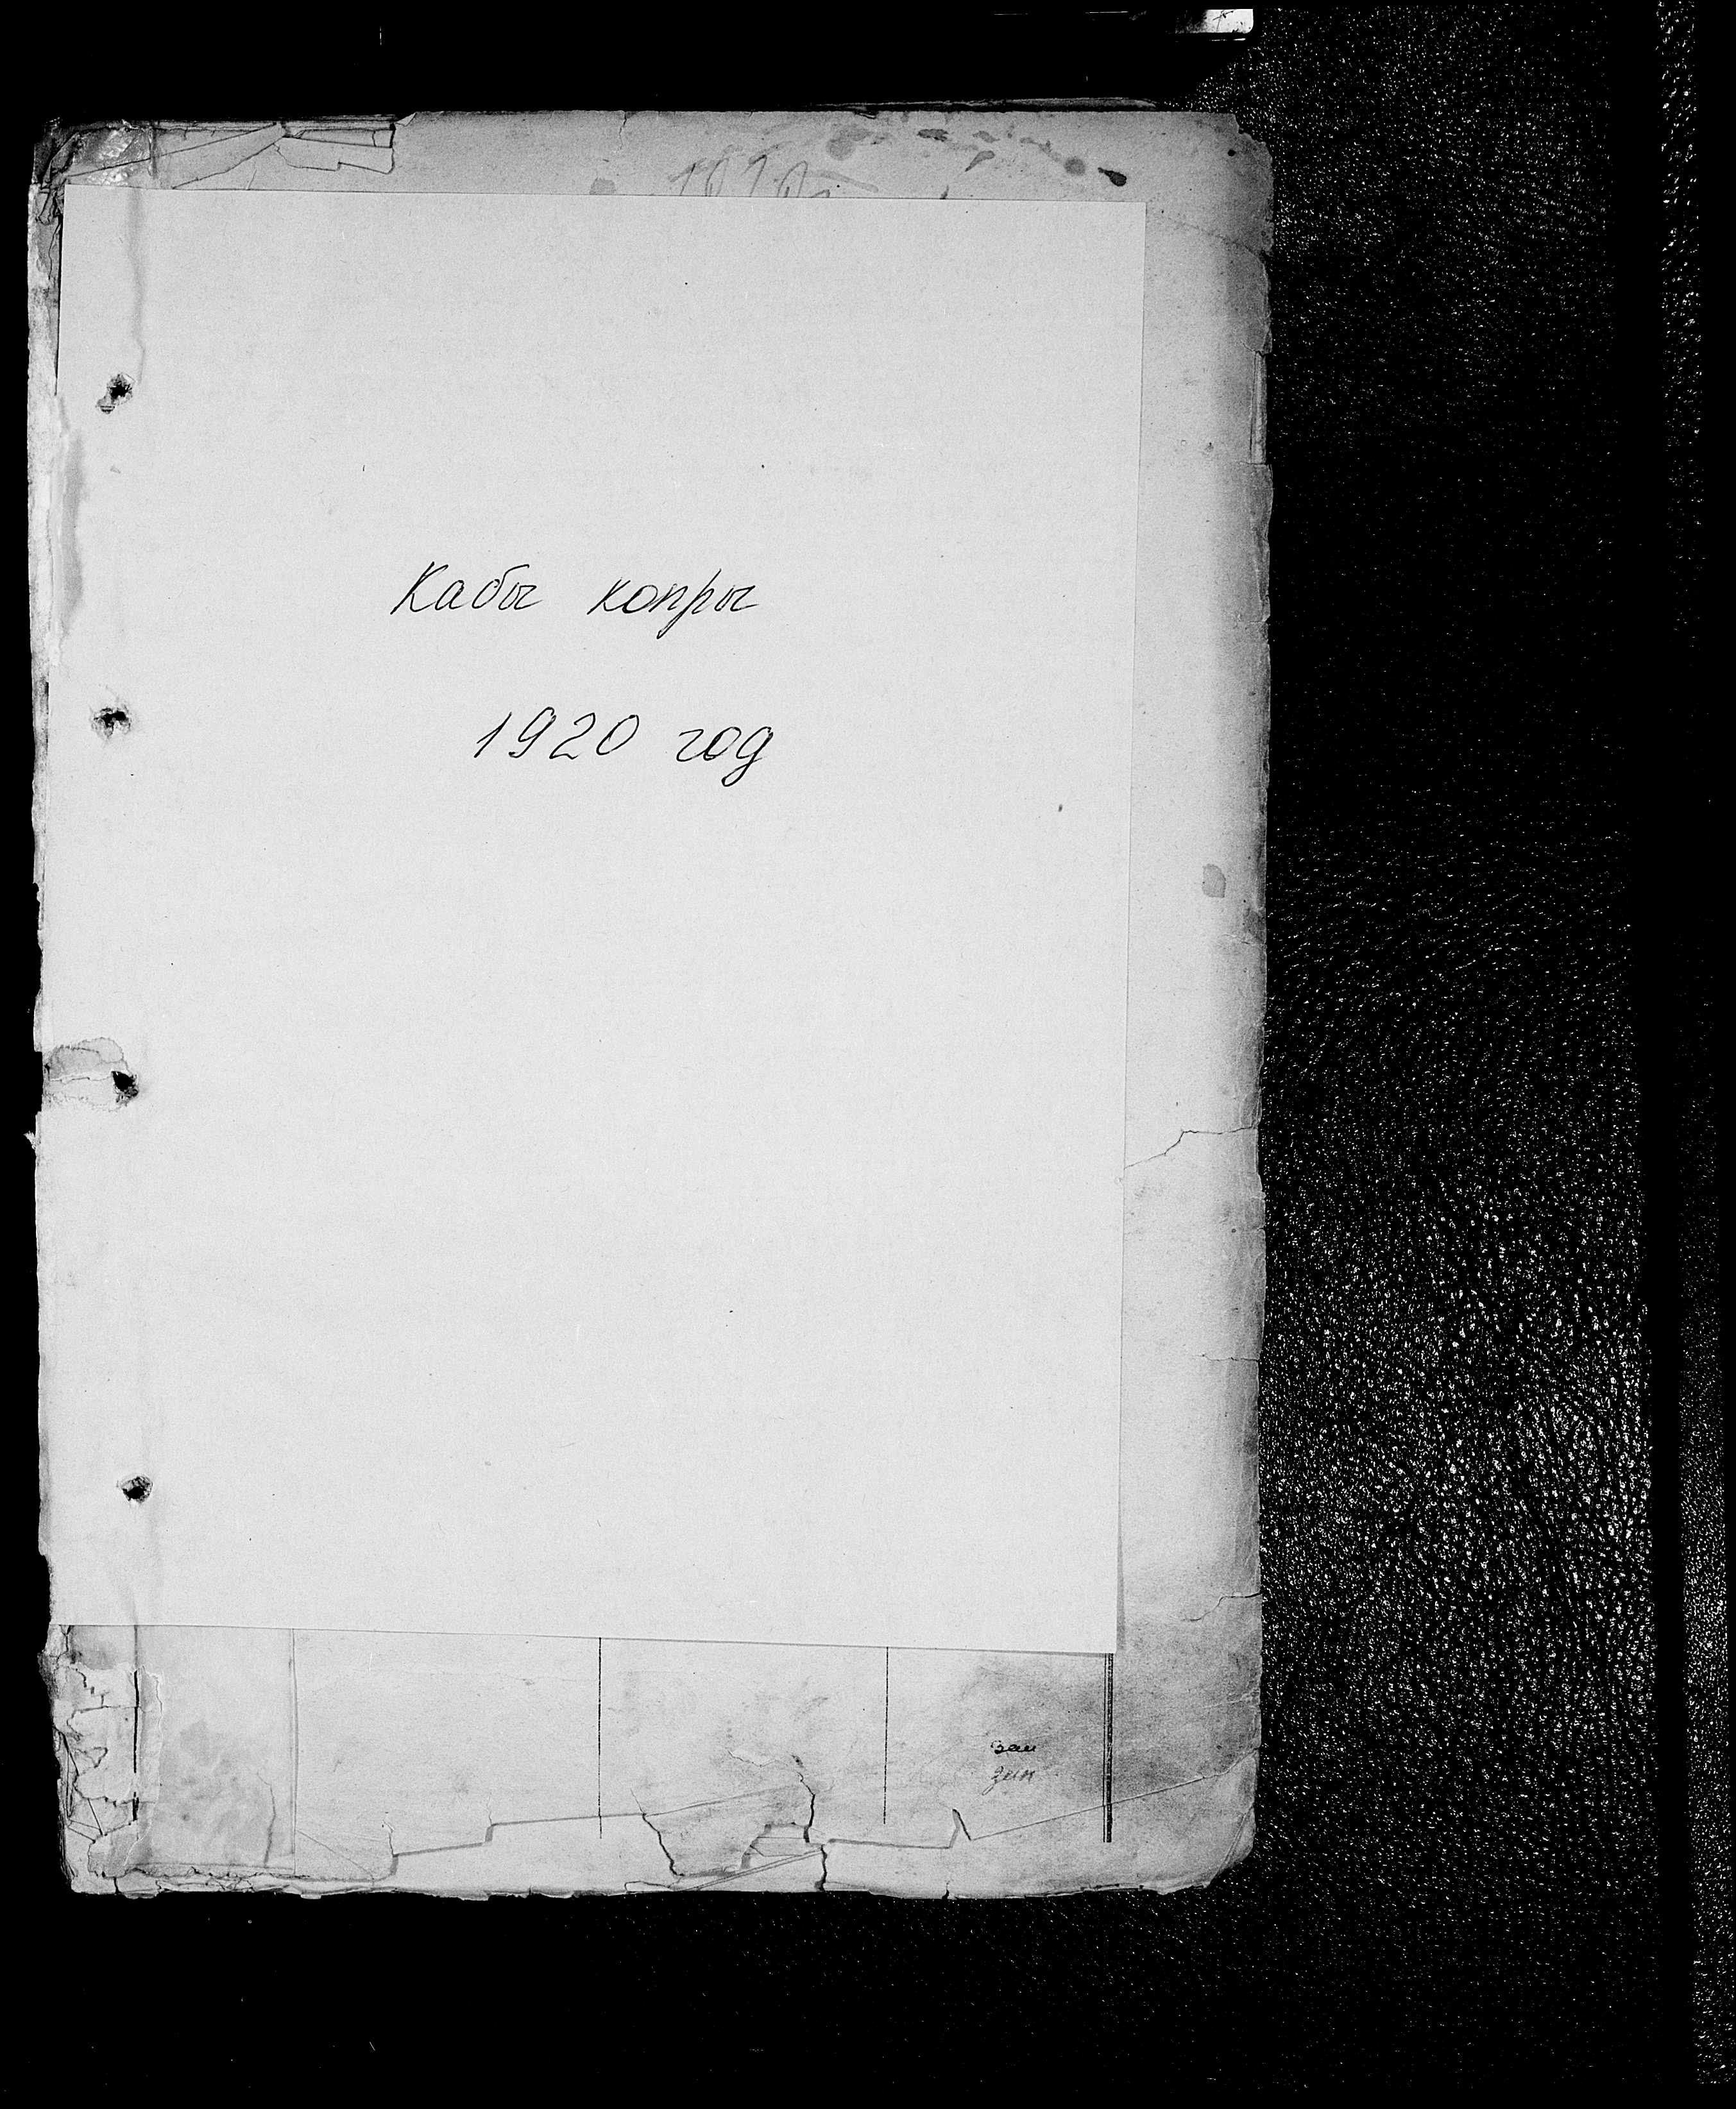 Кабы копры
1920 год
зап